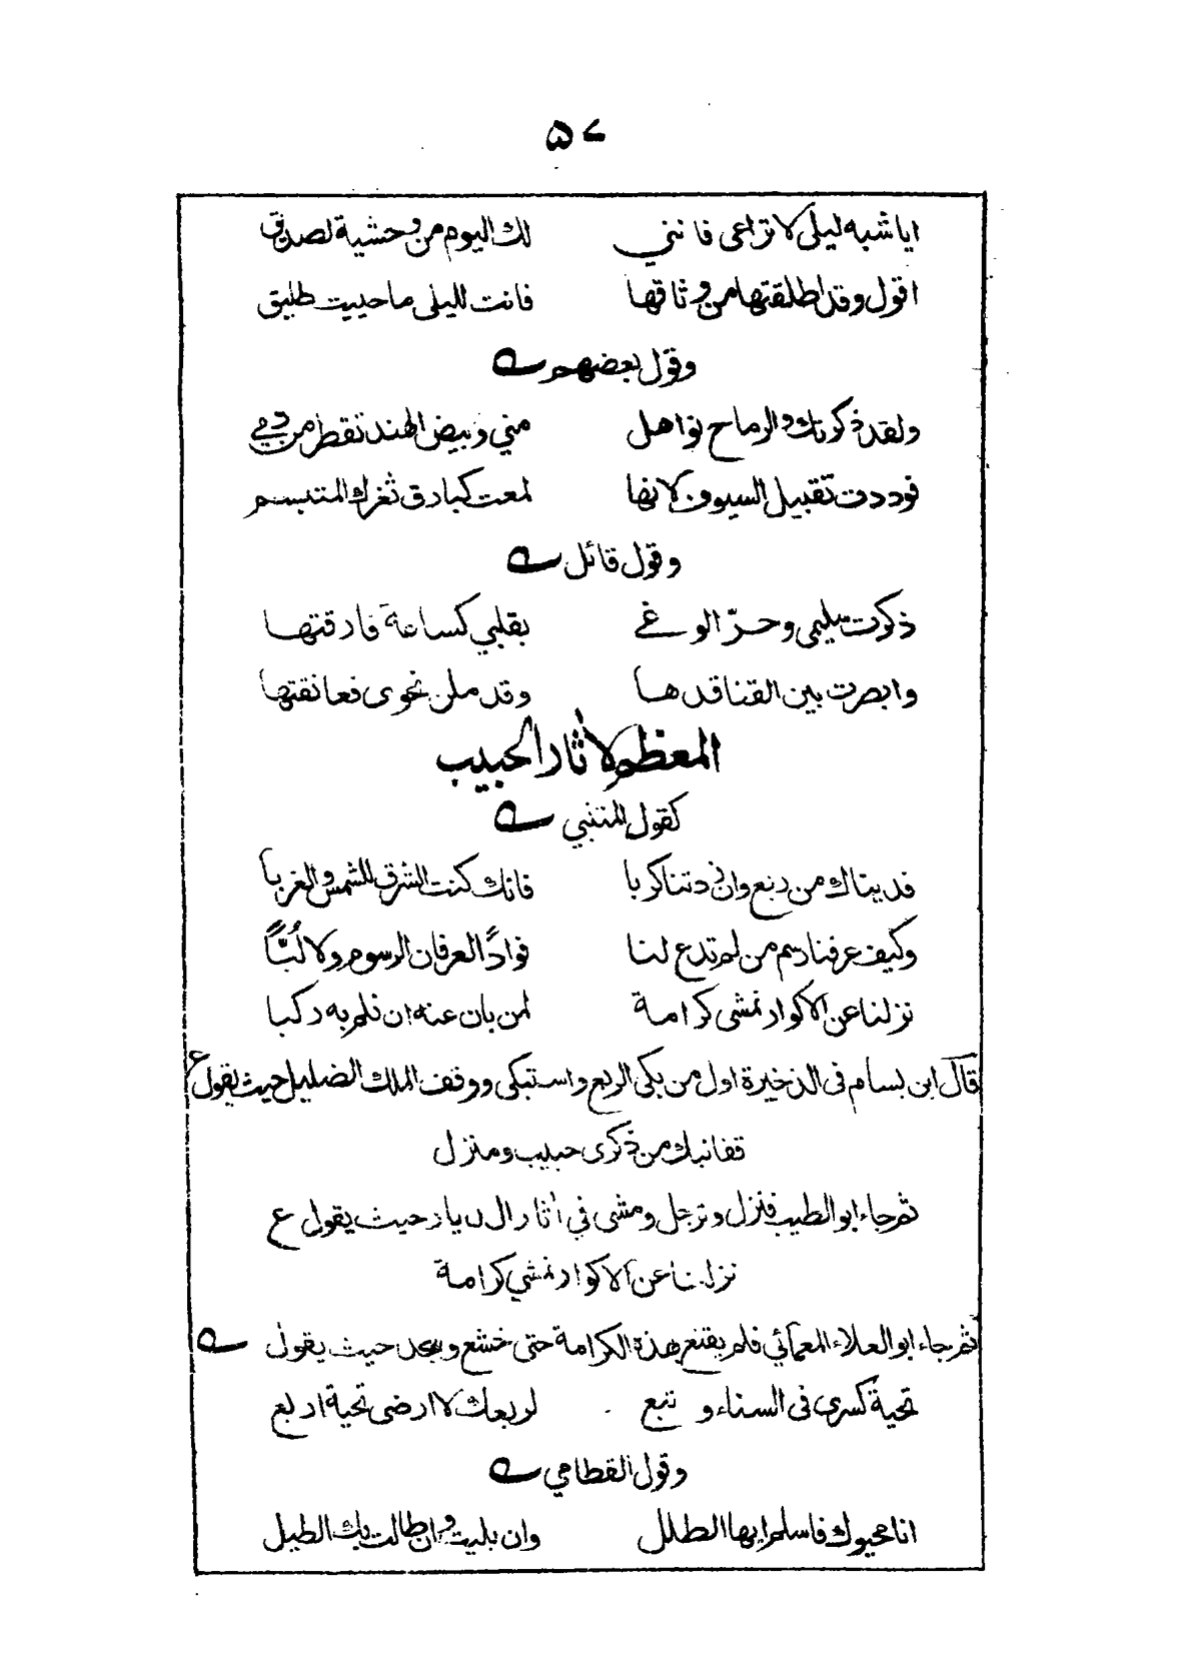 ۵۷
ايا شبه ليلى لا تراعى فانني لك اليوم من وحشية لصديق
اقول وقد اطلقتها من وثاقها فانت لليلى ما حييت طليق
وقول بعضهم
ولقد ذكرتك والرماح نواهل مني وبيض الهند تقطر من دمي
فوددت تقبيل السيوف لانها لمعت كبارق ثغرك المتبسم
وقول قائل
ذكرت سليمى وحرّ الوغى بقلبي كساعة فارقتها
وابصرت بين القنا قدها وقد ملن نحوى فعانقتها
المعظم لآثار الحبيب
كقول المتنبي
فديناك من ربع وان زدتنا كربا فانك كنت الشرق للشمس والغربا
وكيف عرفنا رسم من لم تدع لنا فوادًا لعرفان الرسوم ولا لُبًّا
نزلنا عن الاكوار نمشى كرامة لمن بان عنه ان نلم به ركبا
قال ابن بسام فى الذخيرة اول من بكى الربع واستبكى ووقف الملك الضليل حيث يقول ع
قفا نبك من ذكرى حبيب ومنزل
ثم جاء ابو الطيب فنزل وترجل ومشى في آثار الديار حيث يقول ع
نزلنا عن الاكوار نمشي كرامة
ثم جاء ابو العلاء المعري فلم يقنع هذه الكرامة حتى خشع وسجد حيث يقول
تحية كسرى فى السناء وتبع لربعك لا ارضى تحية اربع
وقول القطامي
انا محيوك فاسلم ايها الطلل وان بليت وان طالت بك الطيل